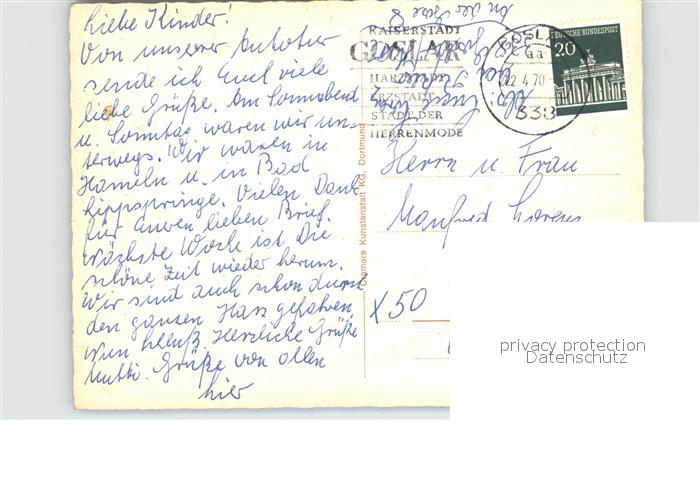 Liebe Kinder!
Von unserer Autotur
sende ich Euch viele
liebe Grüße. Am Sonnabend
u. Sonntag waren wir un-
terwegs. Wir waren in
Hameln u. in Bad
Lippspringe. Vielen Dank
für Euren lieben Brief.
nächste Woche ist die
schöne Zeit wieder herum.
Wir sind auch schon durch
den ganzen Harz gefahren.
Nun Schluß. Herzliche Grüße
Mutti. Grüße von allen
hier
Cramers Kunstanstalt KG, Dortmund
KAISERSTADT
GOSLAR
HARZSTADT
ERZSTADT
STADT DER
HERRENMODE
GOSLAR
aa
22.4.70
338
DEUTSCHE BUNDESPOST
20
Herrn u. Frau
Manfred Lorenz
x 50
privacy protection
Datenschutz